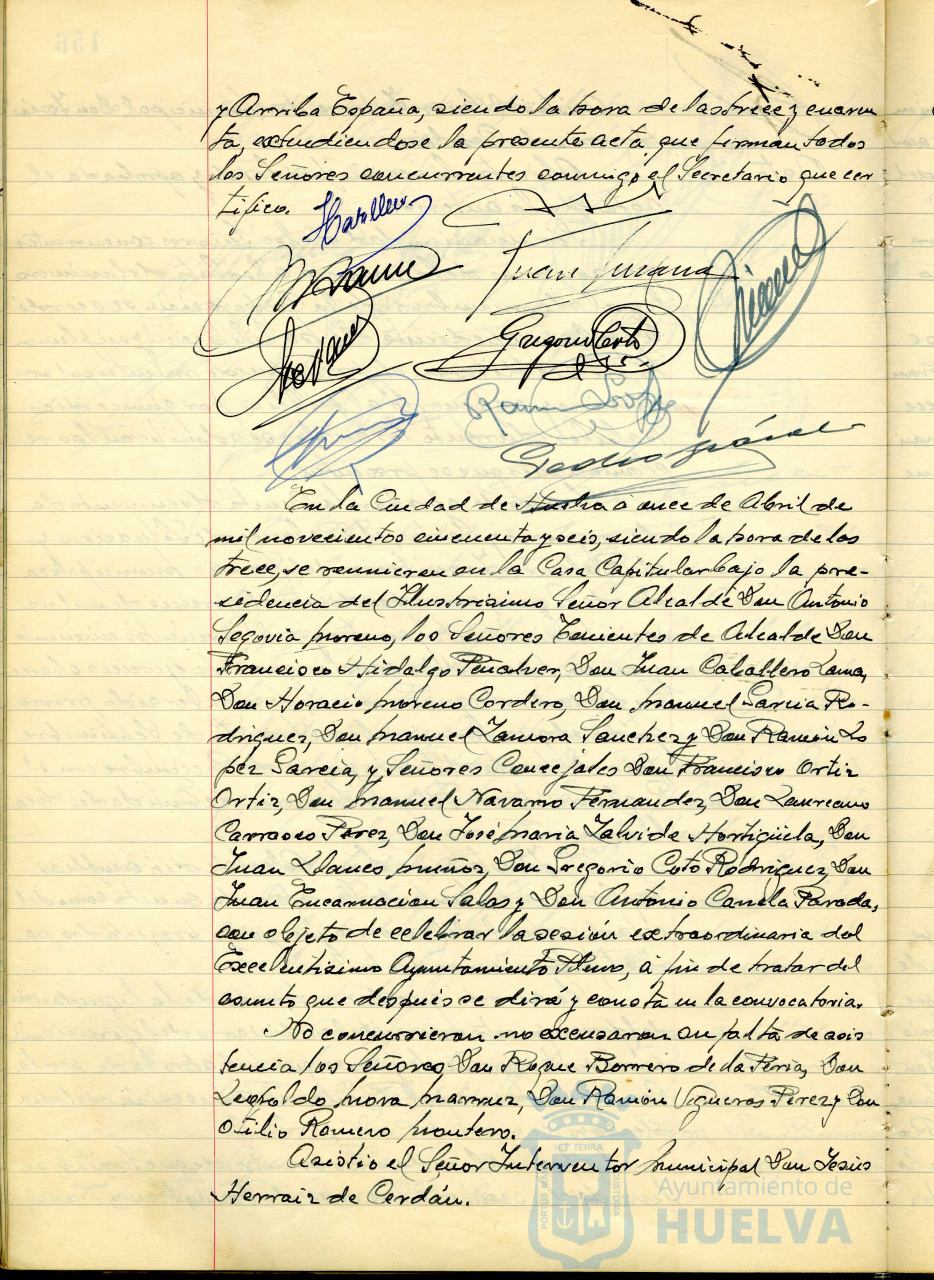 y Arriba España, siendo la hora de las trece y cuaren
ta, extendiendose la presente acta que firman todos
los Señores concurrentes conmigo el Secretario que cer
tifico.
Gregorio Coto
En la Ciudad de Huelva a once de Abril de
mil novecientos cincuenta y seis, siendo la hora de las
trece, se reunieron en la Casa Capitular bajo la pre-
sidencia del Illustrisimo Señor Alcalde Don Antonio
Segovia Moreno, los Señores Tenientes de Alcalde Don
Francisco Hidalgo Peñalver, Don Juan Caballero Lama,
Don Horacio Moreno Cordero, Don Manuel Garcia Ro-
driguez, Don Manuel Zamora Sanchez y Don Ramón Lo
pez Garcia, y Señores Concejales Don Francisco Ortiz
Ortiz, Don Manuel Navarro Fernandez, Don Laureano
Carrasco Perez, Don José Maria Zalvide Hortigüela, Don
Juan Llanes Muñoz, Don Gregorio Coto Rodriguez, Don
Juan Encarnacion Salas y Don Antonio Canela Parada,
con objeto de celebrar la sesión extraordinaria del
Excelentisimo Ayuntamiento Pleno, á fin de tratar del
asunto que despues se dirá y consta en la convocatoria.
No concurrieron no excusaron su falta de asis
tencia los Señores Don Roque Borrero de la Feria, Don
Leopoldo Mora Don Ramón Vigueras Perez y Don
Otilio Romero Montero.
Asistio el Señor Interventor Municipal Don Jesús
Herraiz de Cerdán.
PORTUS MARIS ET TERRÆ CUSTODIA
Ayuntamiento de
HUELVA